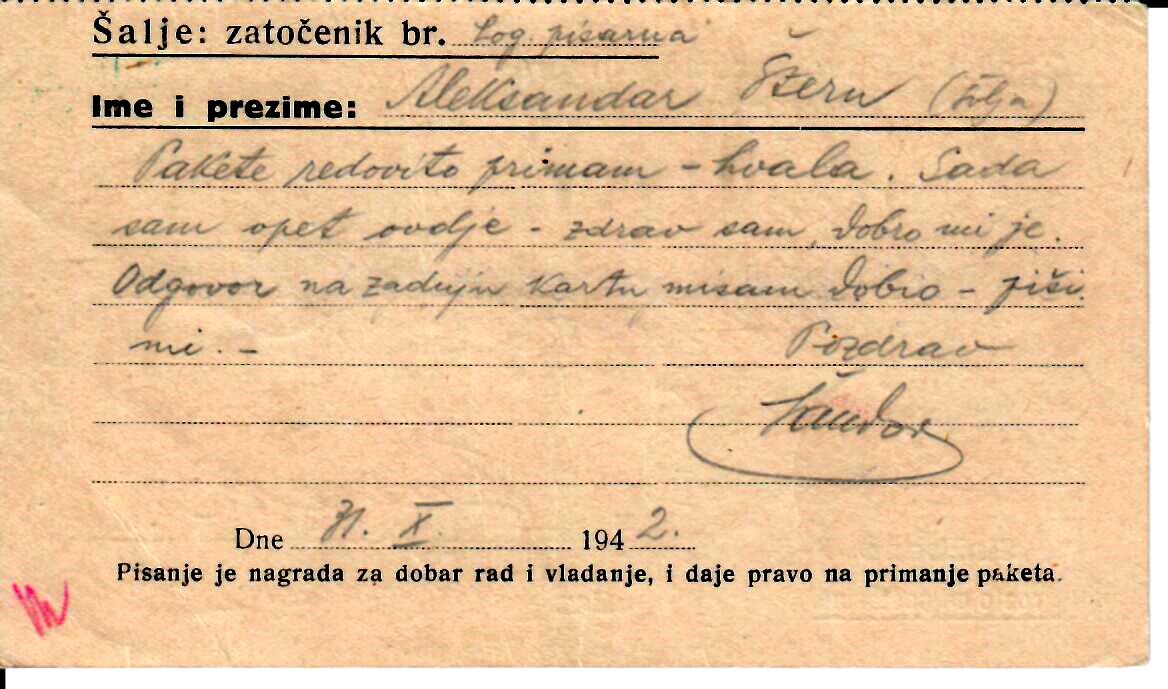 Šalje: zatočenik br. Log. pisarna
Ime i prezime: Aleksandar Štern
Pakete redovito primam - hvala. Sada
sam opet ovdje - zdrav sam, dobro mi je.
Odgovor na zadnju kartu nisam dobio - piši
mi. -
Pozdrav
Šandor
Dne 31. X. 1942.
Pisanje je nagrada za dobar rad i vladanje, i daje pravo na primanje paketa.